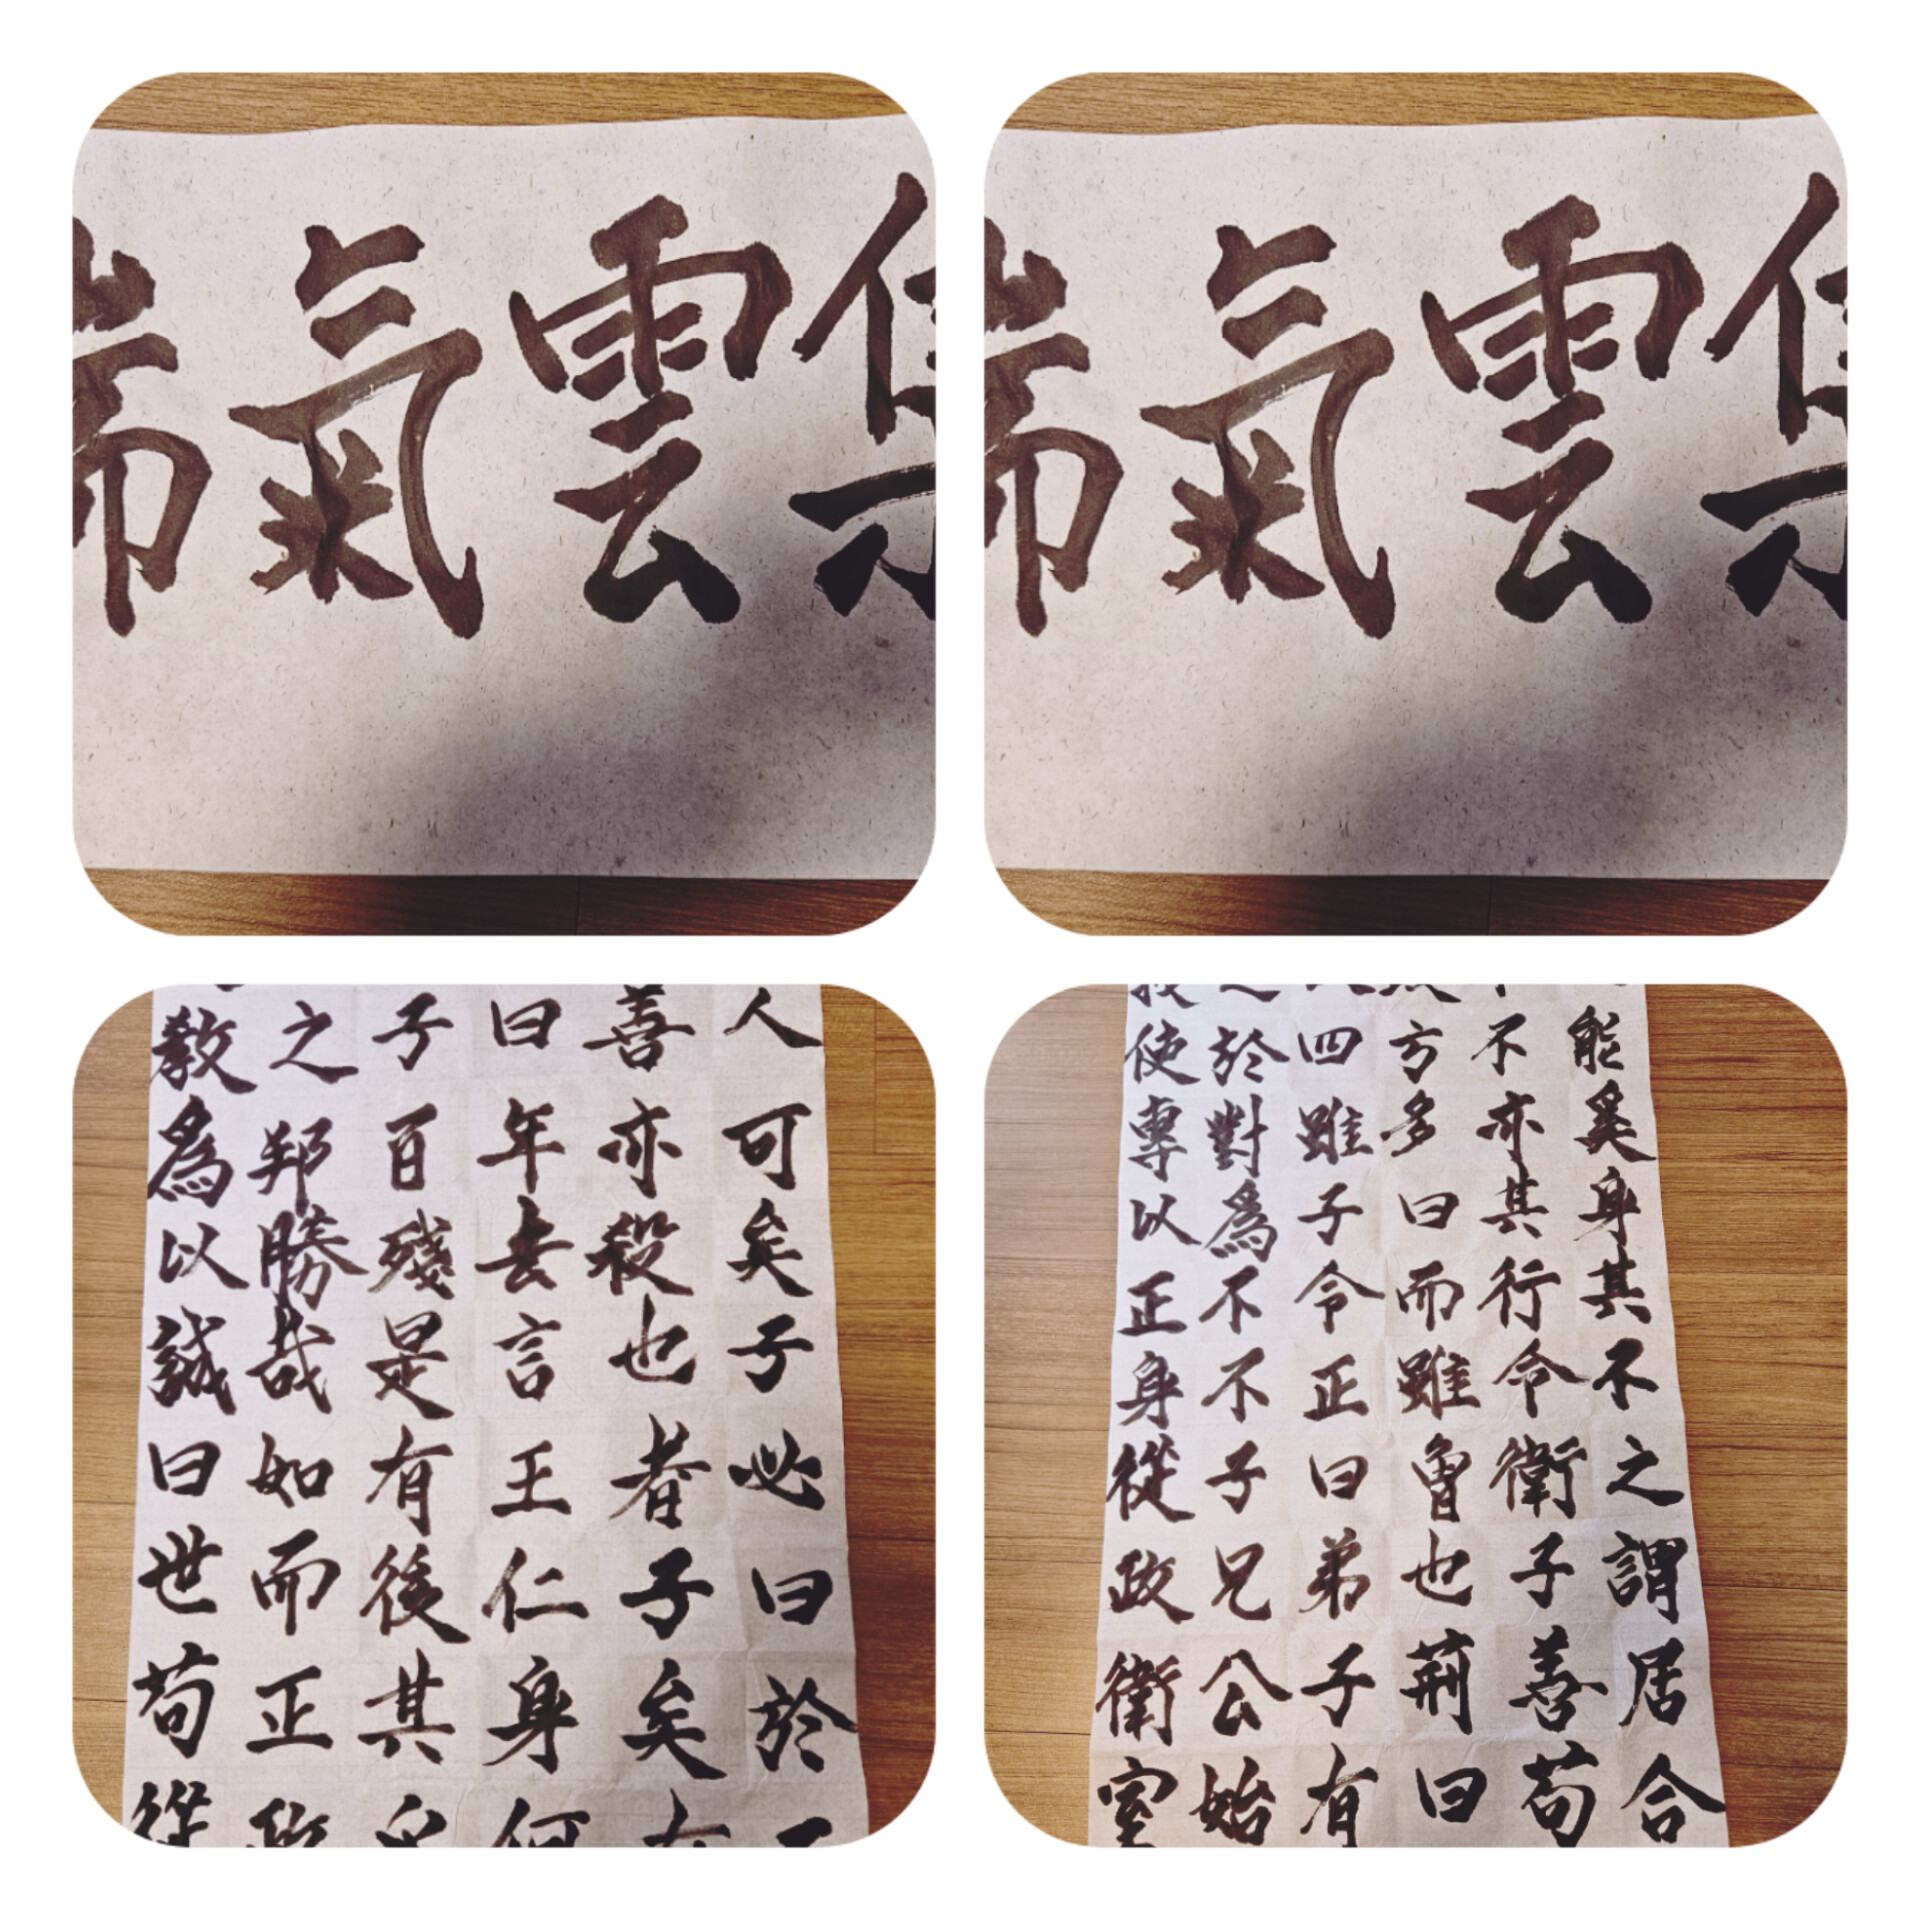 瑞氣雲集
瑞氣雲集
人可矣子必曰於
善亦殺也者子矣
曰年去言王仁身何
子百殘是有後其
之邦勝哉如而正政
教爲以誠曰世苟從
能奚身其不之謂居合
不亦其行令衛子善苟
方多曰而雖魯也荊曰
四雖子令正曰弟子有
於對爲不不子兄公始
使專以正身從政衛室